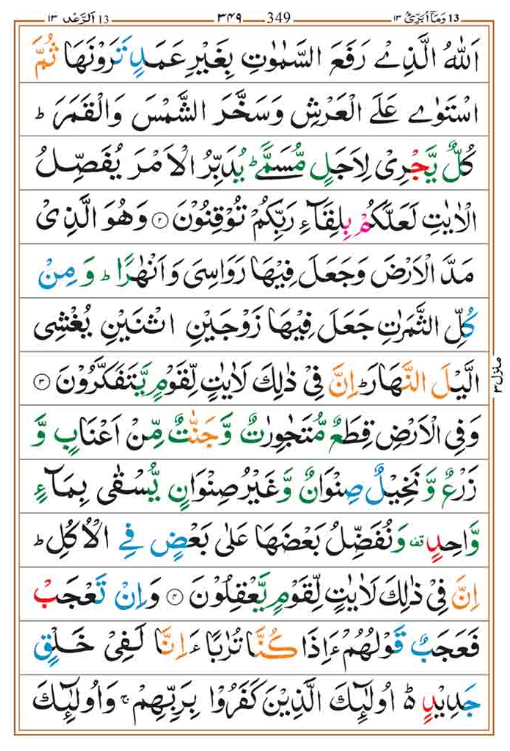 13 وَمَآ اُبَرِّئُ ١٣ — 349 — ٣٤٩ — 13 اَلرَّعْد ١٣
اَللّٰهُ الَّذِىْ رَفَعَ السَّمٰوٰتِ بِغَيْرِ عَمَدٍ تَرَوْنَهَا ثُمَّ
اسْتَوٰى عَلَى الْعَرْشِ وَسَخَّرَ الشَّمْسَ وَالْقَمَرَ ؕ
كُلٌّ يَّجْرِىْ لِاَجَلٍ مُّسَمًّى ؕ يُدَبِّرُ الْاَمْرَ يُفَصِّلُ
الْاٰيٰتِ لَعَلَّكُمْ بِلِقَآءِ رَبِّكُمْ تُوْقِنُوْنَ ۝٢ وَهُوَ الَّذِىْ
مَدَّ الْاَرْضَ وَجَعَلَ فِيْهَا رَوَاسِىَ وَاَنْهٰرًا ؕ وَمِنْ
كُلِّ الثَّمَرٰتِ جَعَلَ فِيْهَا زَوْجَيْنِ اثْنَيْنِ يُغْشِى
الَّيْلَ النَّهَارَ ؕ اِنَّ فِىْ ذٰلِكَ لَاٰيٰتٍ لِّقَوْمٍ يَّتَفَكَّرُوْنَ ۝٣
وَفِى الْاَرْضِ قِطَعٌ مُّتَجٰوِرٰتٌ وَّجَنّٰتٌ مِّنْ اَعْنَابٍ وَّ
زَرْعٌ وَّنَخِيْلٌ صِنْوَانٌ وَّغَيْرُ صِنْوَانٍ يُّسْقٰى بِمَآءٍ
وَّاحِدٍ قف وَنُفَضِّلُ بَعْضَهَا عَلٰى بَعْضٍ فِى الْاُكُلِ ؕ
اِنَّ فِىْ ذٰلِكَ لَاٰيٰتٍ لِّقَوْمٍ يَّعْقِلُوْنَ ۝٤ وَاِنْ تَعْجَبْ
فَعَجَبٌ قَوْلُهُمْ ءَاِذَا كُنَّا تُرٰبًا ءَاِنَّا لَفِىْ خَلْقٍ
جَدِيْدٍ ؕ اُولٰٓئِكَ الَّذِيْنَ كَفَرُوْا بِرَبِّهِمْ ۚ وَاُولٰٓئِكَ
منزل ٣